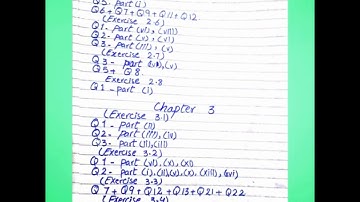 Q5- part(i)
Q6+Q7+Q9+Q11+Q12.
(Exercise 2.6)
Q1- part(vi),(vii)
Q2- part(v),(vi)
Q3- part(iii),(v)
(Exercise 2.7)
Q3- part(v).
Q5+Q8.
Exercise 2.8
Q1-part(i)
Chapter 3
(Exercise 3.1)
Q1- part(ii)
Q2- part(iii),(iv)
Q3- part(i),(iii)
(Exercise 3.2)
Q1- part(vi).(x).(xi)
Q2- part(i).(ii)(v).(x).(xiii),(xvi)
(Exercise 3.3)
Q7+Q9+Q12+Q13+Q21+Q22
(Exercise 3.4)